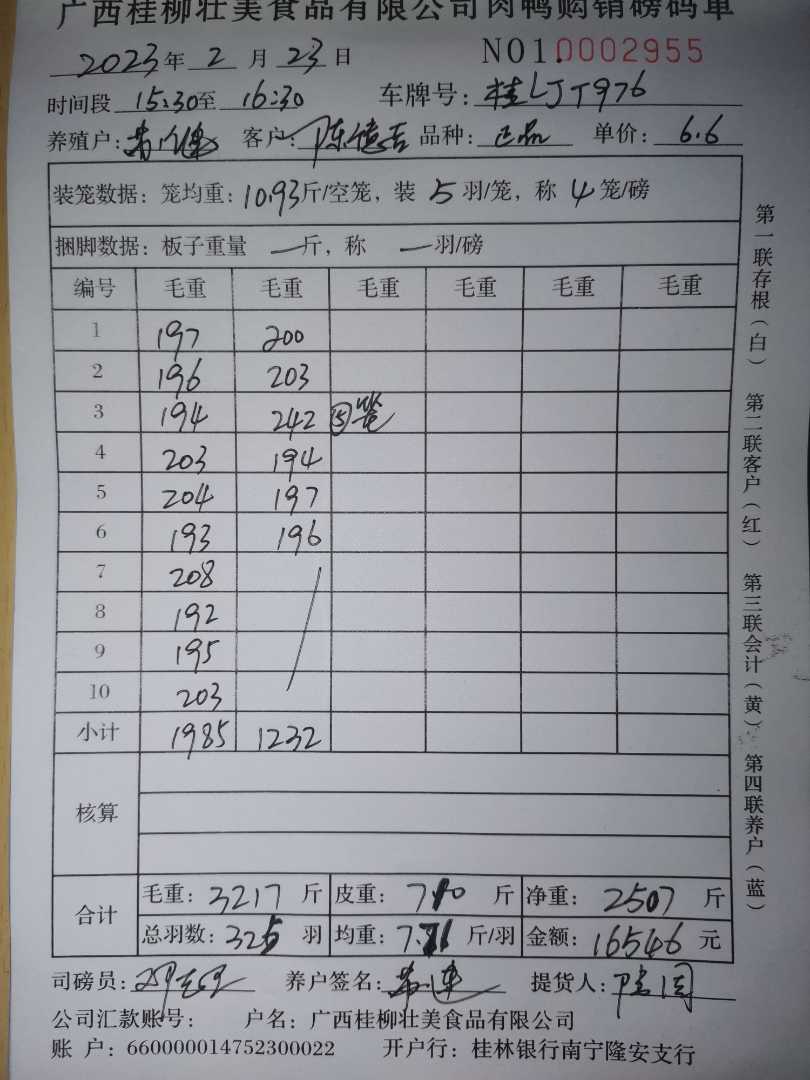 广西桂柳壮美食品有限公司肉鸭购销磅码单
2023年 2 月 23 日 NO1.0002955
时间段 15:30至 16:30 车牌号: 桂LJT976
养殖户: 客户: 陈德吉 品种: 正品 单价: 6.6
装笼数据: 笼均重: 10.93斤/空笼, 装 5 羽/笼, 称 4 笼/磅
捆脚数据: 板子重量 一斤, 称 一羽/磅
编号 毛重 毛重 毛重 毛重 毛重 毛重
1 197 200
2 196 203
3 194 242 ⑤笼
4 203 194
5 204 197
6 193 196
7 208
8 192
9 195
10 203
小计 1985 1232
核算
合计 毛重: 3217 斤 皮重: 710 斤 净重: 2507 斤
总羽数: 325 羽 均重: 7.71 斤/羽 金额: 16546 元
司磅员: 养户签名: 提货人:
公司汇款账号: 户名: 广西桂柳壮美食品有限公司
账 户: 660000014752300022 开户行: 桂林银行南宁隆安支行
第一联存根(白) 第二联客户(红) 第三联会计(黄) 第四联养户(蓝)